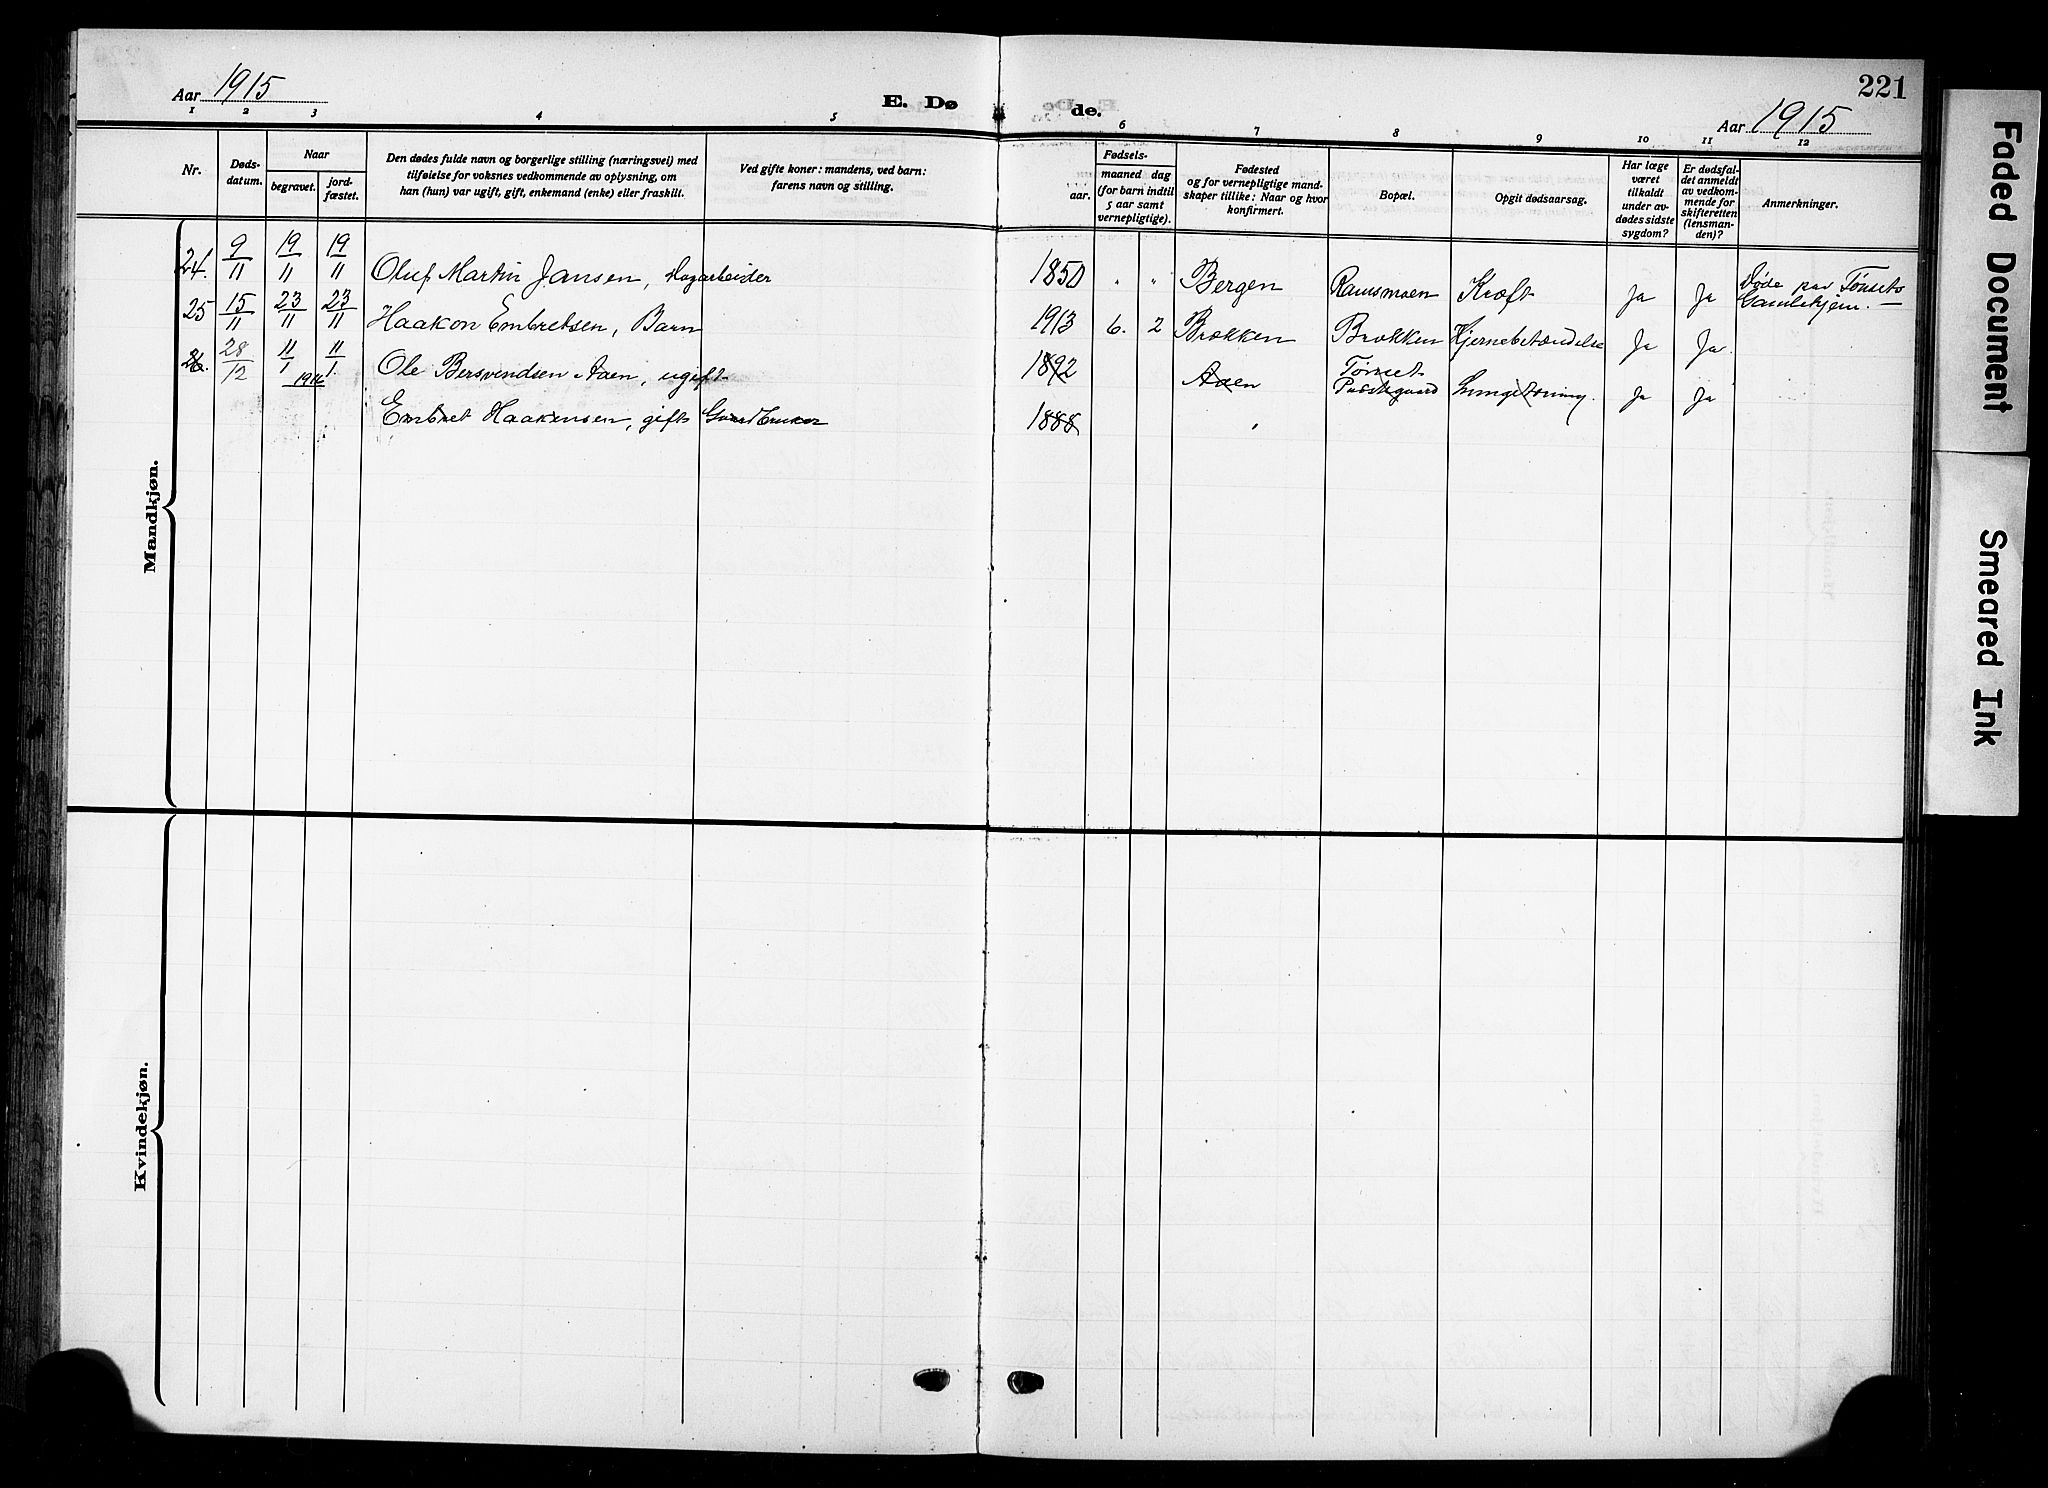 221
Aar 1915
E. Dø
de.
Aar 1915
1 2 3 4 5 6 7 8 9 10 11 12
Nr.
Døds-
datum.
Naar
begravet.
jord-
fæstet.
Den dødes fulde navn og borgerlige stilling (næringsvei) med
tilføielse for voksnes vedkommende av oplysning, om
han (hun) var ugift, gift, enkemand (enke) eller fraskilt.
Ved gifte koner: mandens, ved barn:
farens navn og stilling.
Fødsels-
aar.
maaned dag
(for barn indtil
5 aar samt
vernepligtige).
Fødested
og for vernepligtige mand-
skaper tillike: Naar og hvor
konfirmert.
Bopæl.
Opgit dødsaarsag.
Har læge
været
tilkaldt
under av-
dødes sidste
sygdom?
Er dødsfal-
det anmeldt
av vedkom-
mende for
skifteretten
(lensman-
den)?
Anmerkninger.
Mandkjøn.
24. 9/11 19/11 19/11 Oluf Martin Jansen, 1850 " " Bergen Ramsmoen Kræft Ja Ja Døde paa Tønsets
Gamlehjem. —
25 15/11 23/11 23/11 Haakon Embretsen, Barn 1913 6. 2 Brækken Brækken Hjernebetændelse Ja Ja.
26. 28/12 11/1 11/1 Ole Bersvendsen Aaen, ugift 1892 Aaen Tønset
1916 Lungetæring. Ja Ja
Embret Haakensen, gift Gaardbruker 1888 "
Kvindekjøn.
Faded Document
Smeared Ink